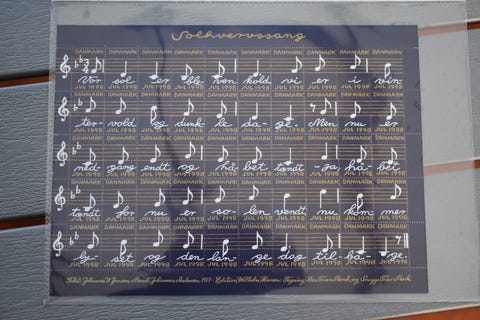 Solhvervssang
DANMARK DANMARK DANMARK DANMARK DANMARK DANMARK DANMARK DANMARK DANMARK DANMARK
Vor sol er ble- ven kold, vi er i vin-
JUL 1998 JUL 1998 JUL 1998 JUL 1998 JUL 1998 JUL 1998 JUL 1998 JUL 1998 JUL 1998 JUL 1998
DANMARK DANMARK DANMARK DANMARK DANMARK DANMARK DANMARK DANMARK DANMARK DANMARK
ter- vold og dunk- le da- ge. Men nu er
JUL 1998 JUL 1998 JUL 1998 JUL 1998 JUL 1998 JUL 1998 JUL 1998 JUL 1998 JUL 1998 JUL 1998
DANMARK DANMARK DANMARK DANMARK DANMARK DANMARK DANMARK DANMARK DANMARK DANMARK
ned- gang endt og hå- bet tændt - ja hå- bets
JUL 1998 JUL 1998 JUL 1998 JUL 1998 JUL 1998 JUL 1998 JUL 1998 JUL 1998 JUL 1998 JUL 1998
DANMARK DANMARK DANMARK DANMARK DANMARK DANMARK DANMARK DANMARK DANMARK DANMARK
tændt, for nu er so- len vendt, nu kom- mer
JUL 1998 JUL 1998 JUL 1998 JUL 1998 JUL 1998 JUL 1998 JUL 1998 JUL 1998 JUL 1998 JUL 1998
DANMARK DANMARK DANMARK DANMARK DANMARK DANMARK DANMARK DANMARK DANMARK DANMARK
ly- set og den lan- ge dag til- ba- ge.
JUL 1998 JUL 1998 JUL 1998 JUL 1998 JUL 1998 JUL 1998 JUL 1998 JUL 1998 JUL 1998 JUL 1998
Johannes V. Jensen Musik: Johannes Edition Wilhelm Hansen Tegning: og